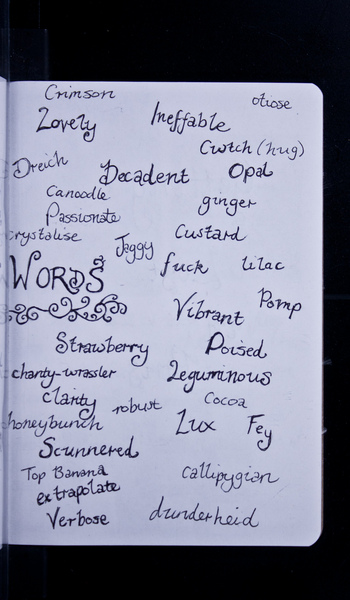 Crimson
otiose
Lovely
Ineffable
Cwtch (hug)
Dreich
Decadent
Opal
Canoodle
ginger
Passionate
crystalise
Jaggy
Custard
WORDS
fuck
lilac
Vibrant
Pomp
Strawberry
Poised
chanty-wrassler
Leguminous
clarity
robust
Cocoa
honeybunch
Lux
Fey
Scunnered
Top Banana
callipygian
extrapolate
Verbose
dunderheid